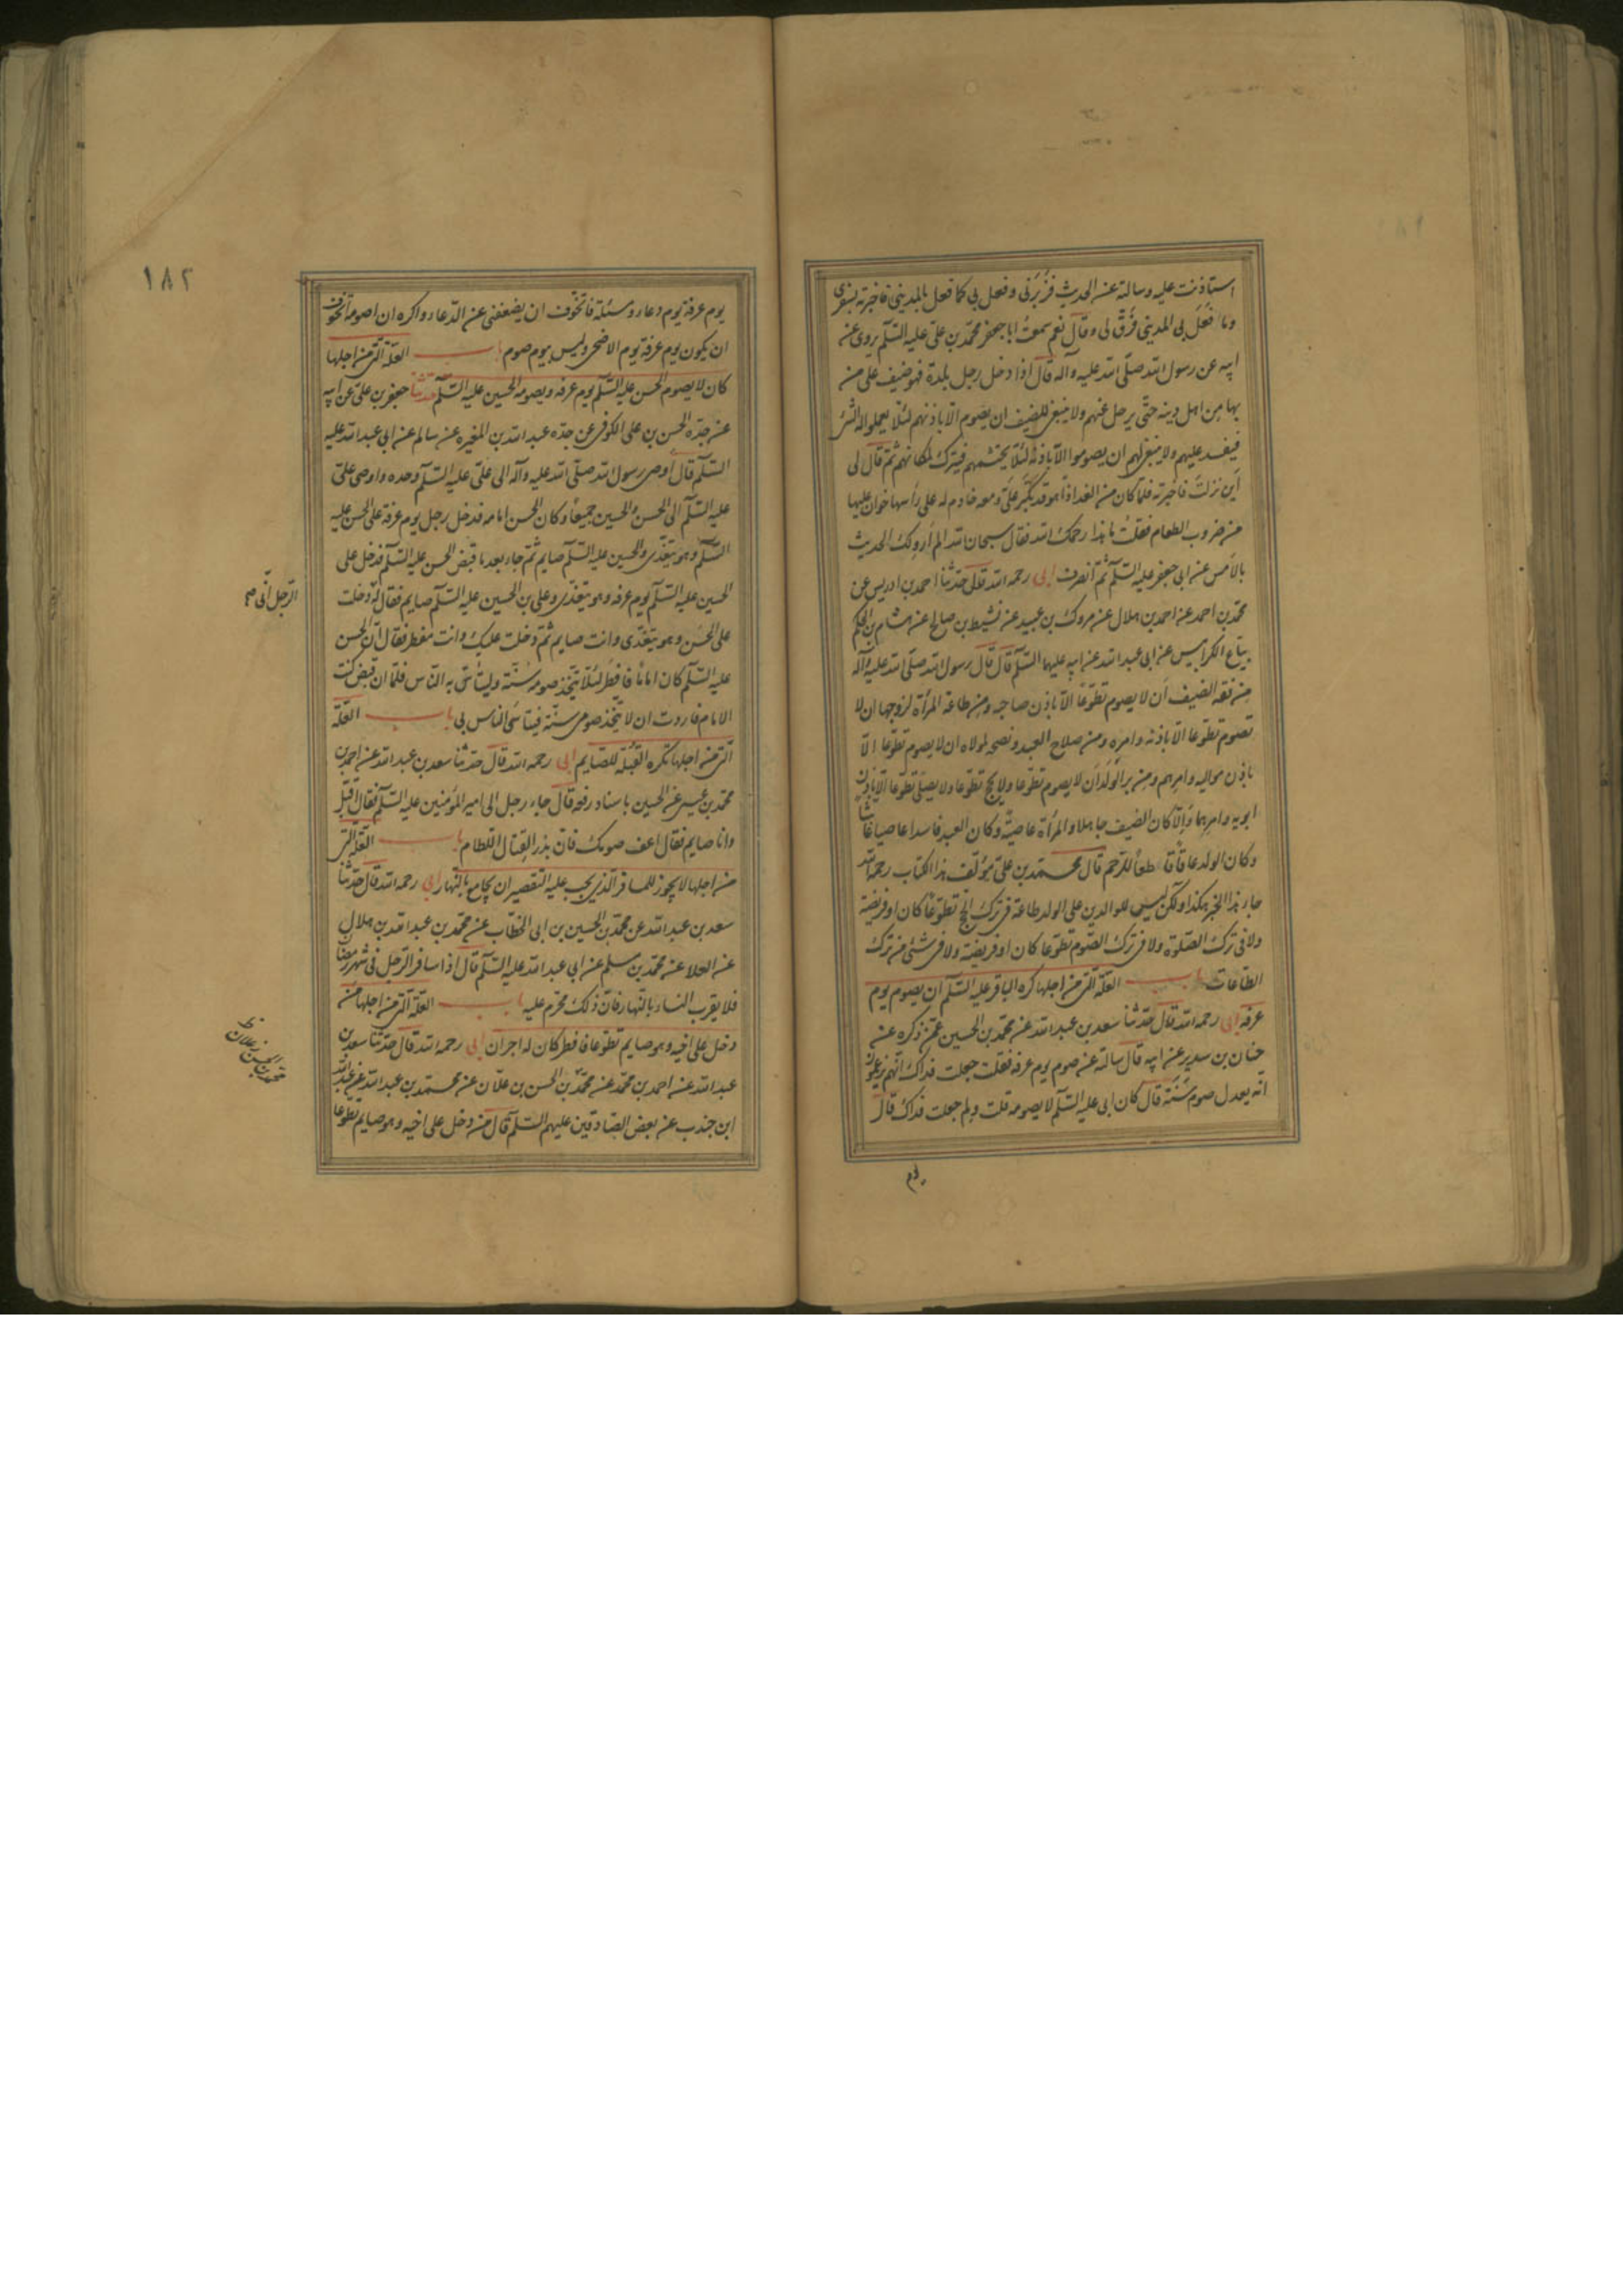 استاذنت عليه وسالته عن الحديث فزبرنى وفعل بى كما فعل بالمدينى فاخبرته بسفرى
وما فعل بى المدينى فرق لى وقال نعم سمعت ابا جعفر محمد بن على عليه السلم يروى عن
ابيه عن رسول الله صلى الله عليه وآله قال اذا دخل رجل بلدة فهو ضيف على من
بها من اهل دينه حتى يرحل عنهم ولا ينبغى للضيف ان يصوم الا باذنهم لئلا يعملوا له الشئ
فيفسد عليهم ولا ينبغى لهم ان يصوموا الا باذنه لئلا يحتشمهم فيترك لمكانهم ثم قال لى
اين نزلت فاخبرته فلما كان من الغد اذا هو قد بكر على ومعه خادم له على رأسها خوان عليها
من ضروب الطعام فقلت ما هذا رحمك الله فقال سبحان الله الم أرو لك الحديث
بالامس عن ابى جعفر عليه السلم ثم انصرف ابى رحمه الله قال حدثنا احمد بن ادريس عن
محمد بن احمد عن احمد بن هلال عن مروك بن عبيد عن نشيط بن صالح عن هشام بن الحكم
بياع الكرابيس عن ابى عبد الله عن ابيه عليهما السلم قال قال رسول الله صلى الله عليه وآله
من فقه الضيف ان لا يصوم تطوعا الا باذن صاحبه ومن طاعة المرأة لزوجها ان لا
تصوم تطوعا الا باذنه وامره ومن صلاح العبد ونصحه لمولاه ان لا يصوم تطوعا الا
باذن مواليه وامرهم ومن بر الولد ان لا يصوم تطوعا ولا يحج تطوعا ولا يصلى تطوعا الا باذن
ابويه وامرهما والا كان الضيف جاهلا والمرأة عاصية وكان العبد فاسدا عاصيا غاشا
وكان الولد عاقا قاطعا للرحم قال محمد بن على مؤلف هذا الكتاب رحمه الله
جاء هذا الخبر هكذا ولكن ليس للوالدين على الولد طاعة فى ترك الحج تطوعا كان او فريضة
ولا فى ترك الصلوة ولا فى ترك الصوم تطوعا كان او فريضة ولا فى شئ من ترك
الطاعات باب العلة التى من اجلها كره الباقر عليه السلم ان يصوم يوم
عرفه ابى رحمه الله قال حدثنا سعد بن عبد الله عن محمد بن الحسين عمن ذكره عن
حنان بن سدير عن ابيه قال سالته عن صوم يوم عرفه فقلت جعلت فداك انهم يزعمون
انه يعدل صوم سنة قال كان ابى عليه السلم لا يصومه قلت ولم جعلت فداك قال
يوم
١٨٢
يوم عرفة يوم دعاء ومسئلة فاتخوف ان يضعفنى عن الدعاء واكره ان اصومه اتخوف
ان يكون يوم عرفة يوم الاضحى وليس بيوم صوم باب العلة التى من اجلها
كان لا يصوم الحسن عليه السلم يوم عرفه ويصومه الحسين عليه السلم حدثنا جعفر بن على عن ابيه
عن جده الحسن بن على الكوفى عن جده عبد الله بن المغيره عن سالم عن ابى عبد الله عليه
السلم قال اوصى رسول الله صلى الله عليه وآله الى على عليه السلم وحده واوصى على
عليه السلم الى الحسن والحسين جميعا وكان الحسن امامه فدخل رجل يوم عرفة على الحسن عليه
السلم وهو يتغدى والحسين عليه السلم صايم ثم جاء بعد ما قبض الحسن عليه السلم فدخل على
الحسين عليه السلم يوم عرفه وهو يتغدى وعلى بن الحسين عليه السلم صايم فقال له دخلت
الرجل انى
على الحسن وهو يتغدى وانت صايم ثم دخلت عليك وانت مفطر فقال ان الحسن
عليه السلم كان اماما فافطر لئلا يتخذ صومه سنة وليتأسى به الناس فلما ان قبض كنت
الامام فاردت ان لا يتخذ صومى سنة فيتاسى الناس بى باب العلة
التى من اجلها تكره القبلة للصايم ابى رحمه الله قال حدثنا سعد بن عبد الله عن احمد بن
محمد بن عيسى عن الحسين باسناد رفعه قال جاء رجل الى امير المؤمنين عليه السلم فقال اقبل
وانا صايم فقال اعف صومك فان بذر القتال اللطام باب العلة التى
من اجلها لا يجوز للمسافر الذى يجب عليه التقصير ان يجامع بالنهار ابى رحمه الله قال حدثنا
سعد بن عبد الله عن محمد بن الحسين بن ابى الخطاب عن محمد بن عبد الله بن هلال
عن العلا عن محمد بن مسلم عن ابى عبد الله عليه السلم قال اذا سافر الرجل فى شهر رمضان
فلا يقرب النساء بالنهار فان ذلك محرم عليه باب العلة التى من اجلها من
دخل على اخيه وهو صايم تطوعا فافطر كان له اجران ابى رحمه الله قال حدثنا سعد بن
عبد الله عن احمد بن محمد عن محمد بن الحسن بن علان عن محمد بن عبد الله عن عبد الله
محمد بن الحسن بن علان
ابن جندب عن بعض الصادقين عليهم السلم قال من دخل على اخيه وهو صايم تطوعا